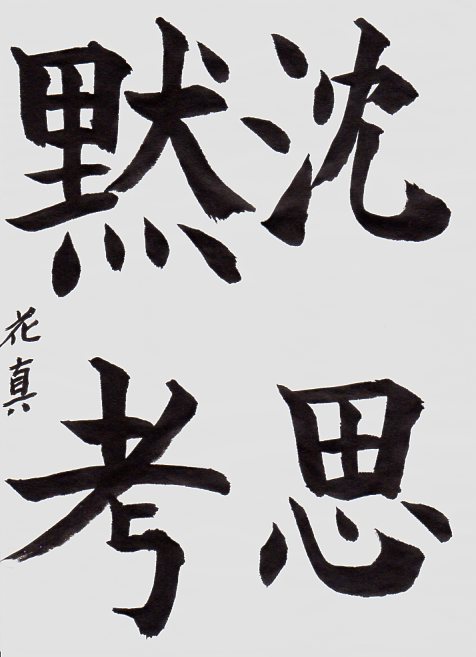 沈思
黙考
花真